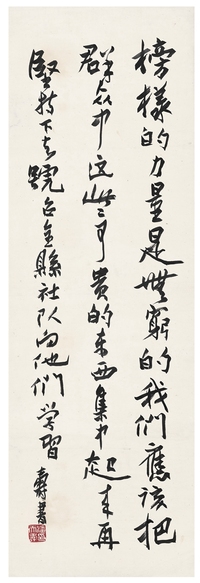 榜樣的力量是無窮的我們應該把
群众中这些可貴的东西集中起来再
堅持下去號召全縣社队向他們学習
壽書